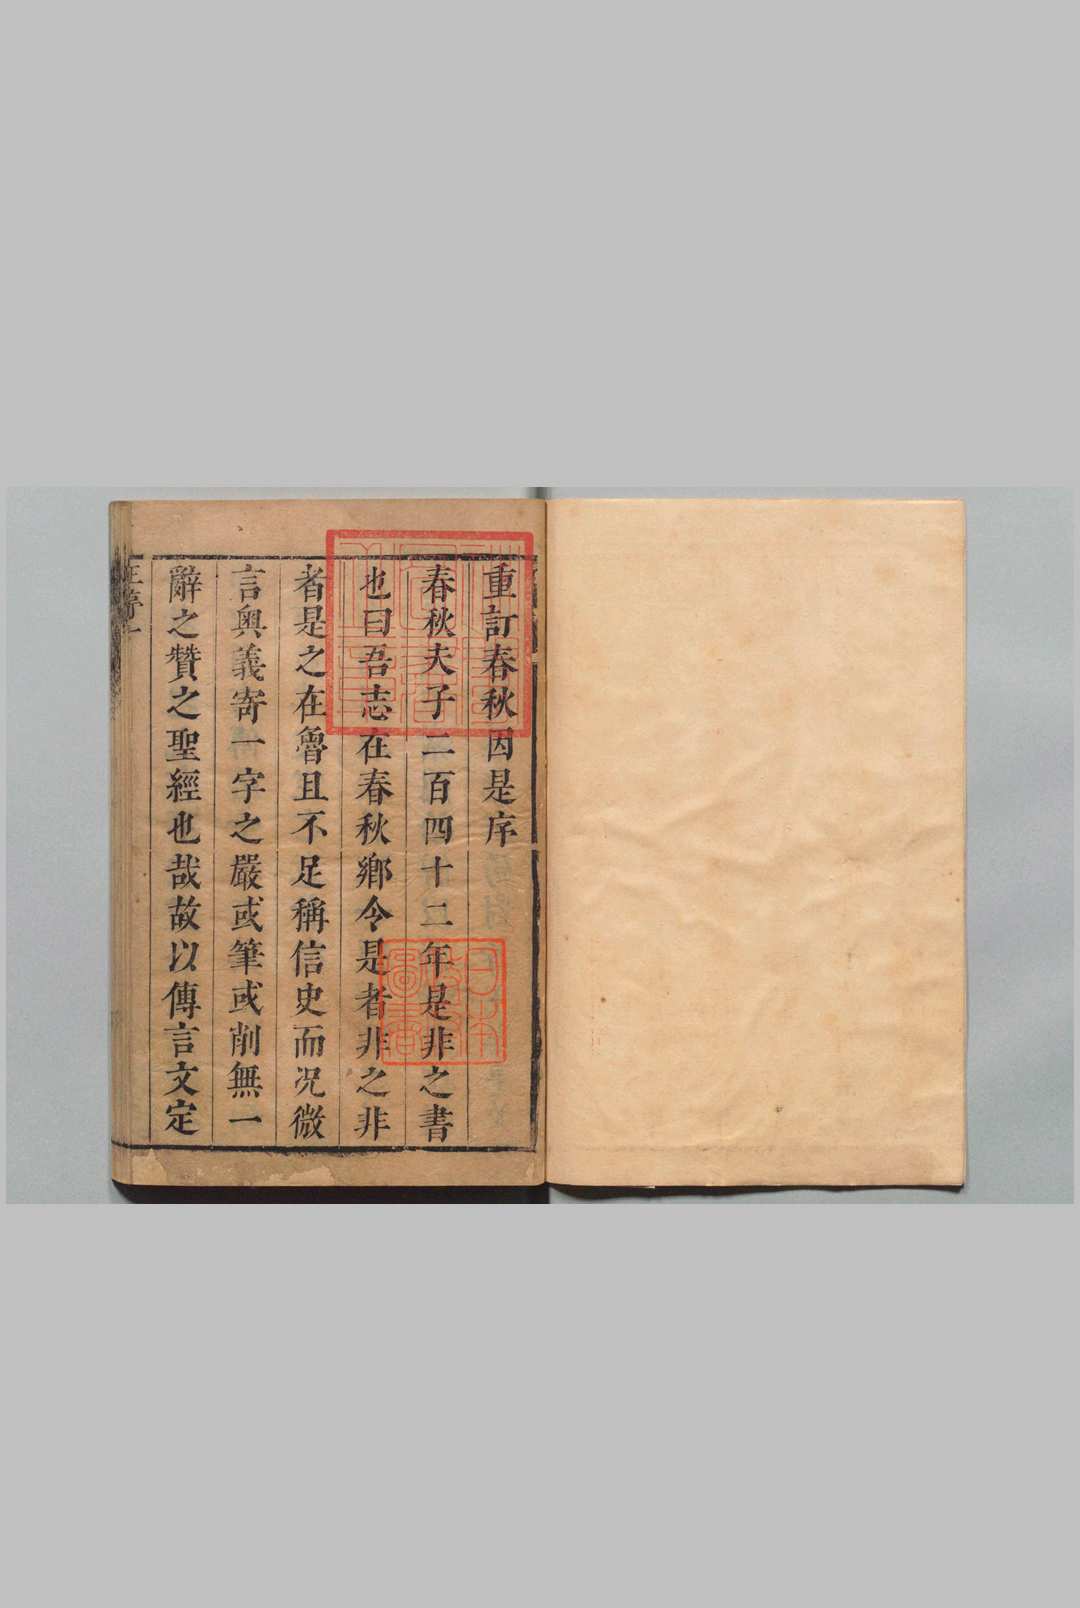 重訂春秋因是序
春秋夫子二百四十二年是非之書
也曰吾志在春秋鄉令是者非之非
者是之在魯且不足稱信史而况微
言奧義寄一字之嚴或筆或削無一
辭之贊之聖經也哉故以傳言文定